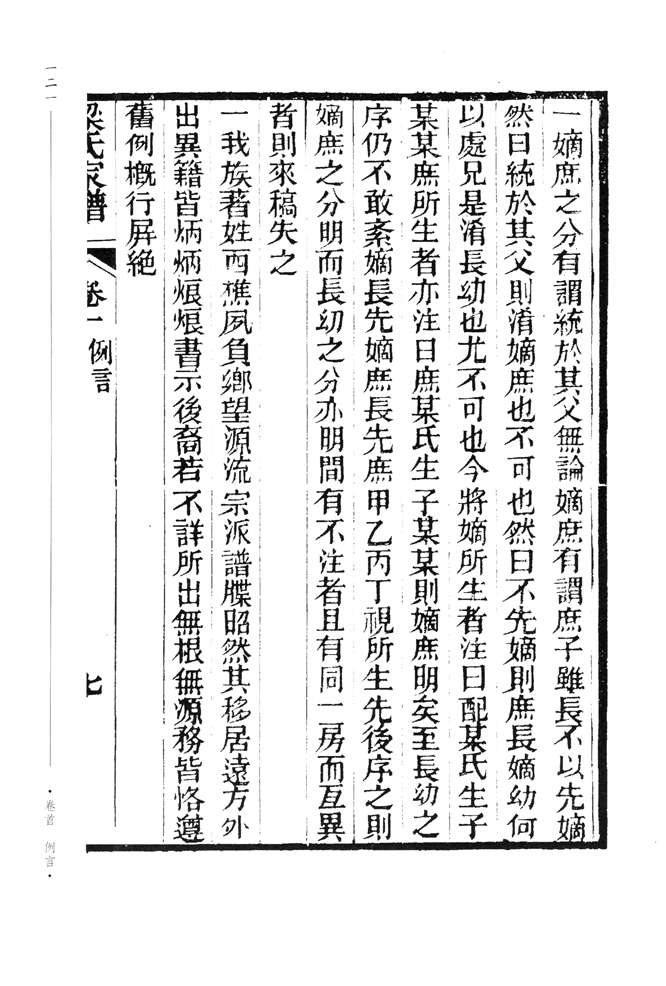 一嫡庶之分有謂統於其父無論嫡庶有謂庶子雖長不以先嫡
然曰統於其父則淆嫡庶也不可也然曰不先嫡則庶長嫡幼何
以處兄是淆長幼也尤不可也今將嫡所生者注曰配某氏生子
某某庶所生者亦注曰庶某氏生子某某則嫡庶明矣至長幼之
序仍不敢紊嫡長先嫡庶長先庶甲乙丙丁視所生先後序之則
嫡庶之分明而長幼之分亦明間有不注者且有同一房而互異
者則來稿失之
一我族著姓西樵夙負鄉望源流宗派譜牒昭然其移居遠方外
出異籍皆炳炳烺烺書示後裔若不詳所出無根無源務皆恪遵
舊例概行屏絶
梁氏家譜 卷一例言 七
一二一
·卷首 例言·